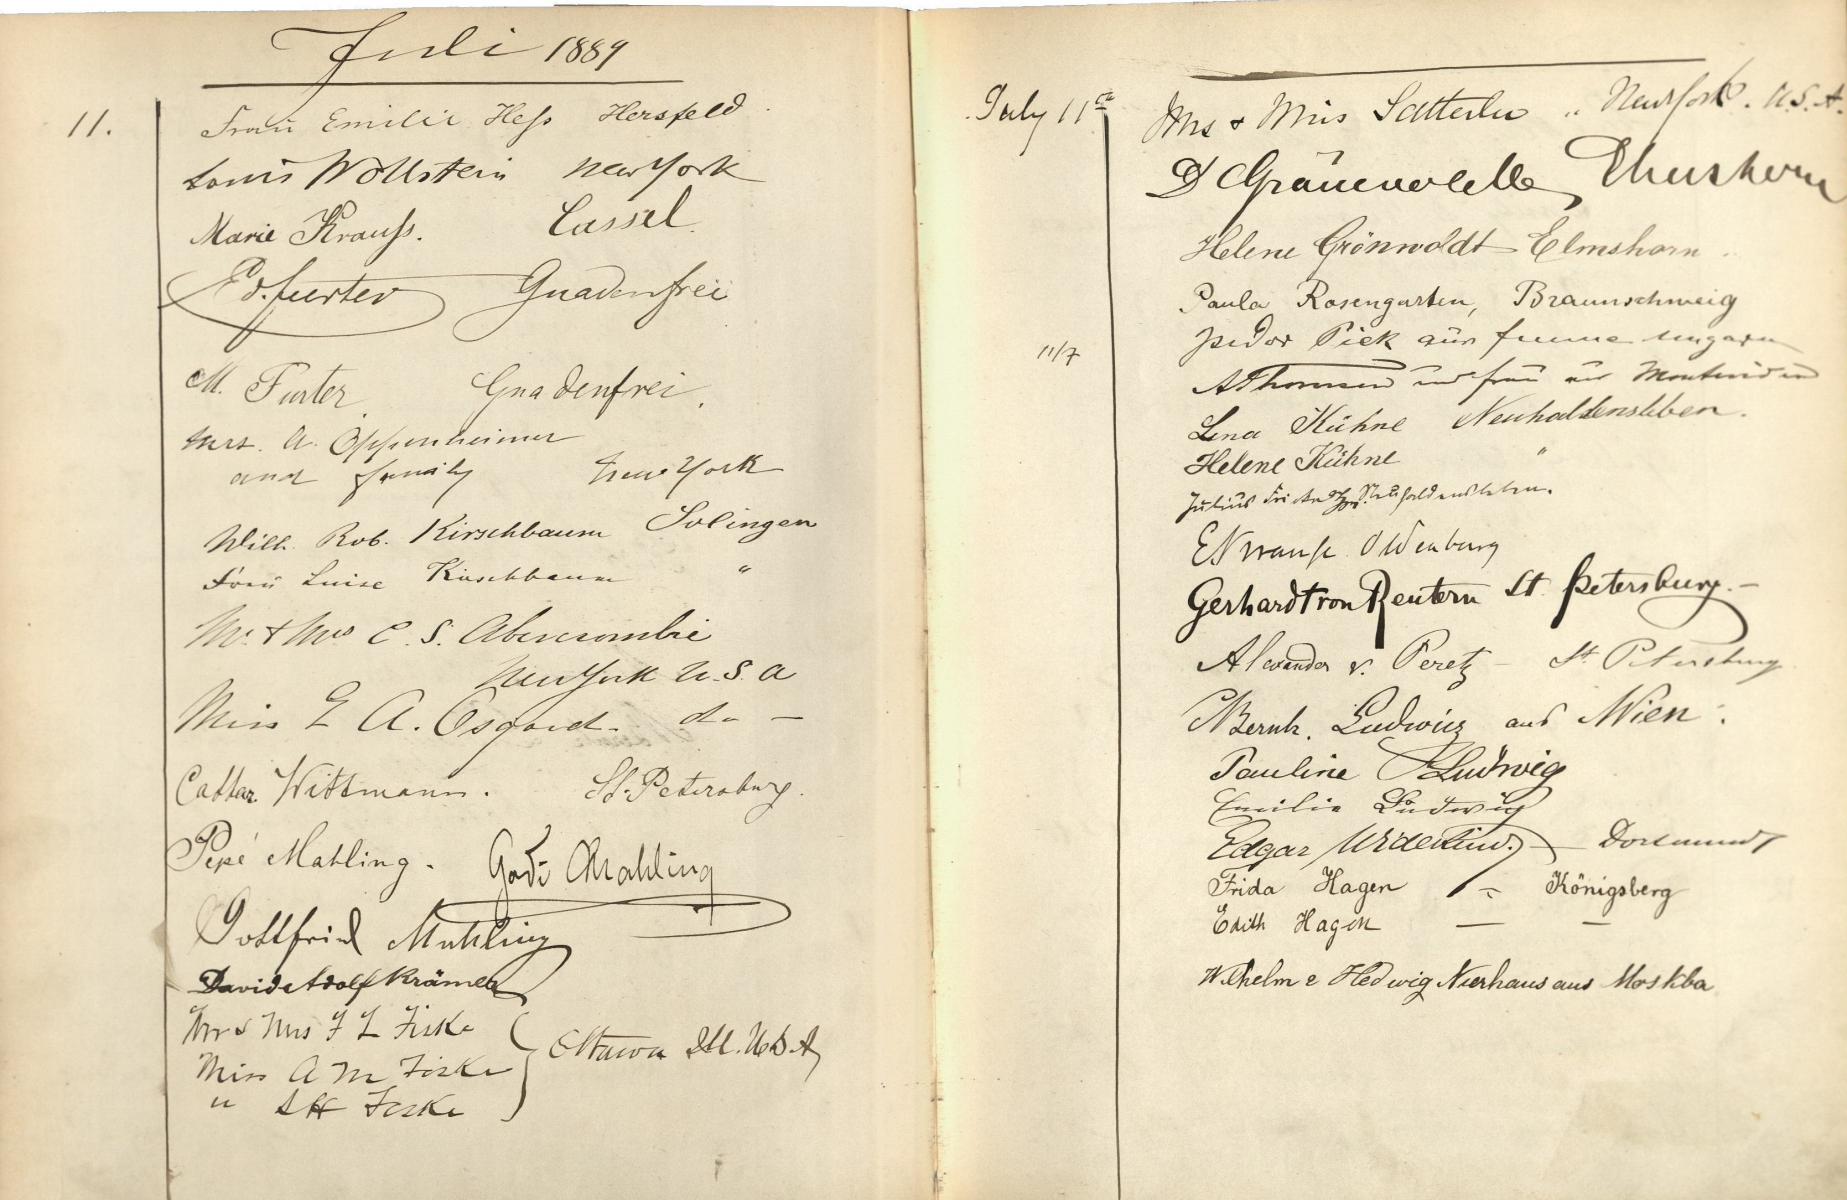 Juli 1889
11.
Frau Emilie Heß Hersfeld
Louis Wollstein New York
Marie Krauß. Cassel.
Ed. Furter Gnadenfrei
M. Furter. Gnadenfrei.
Mrs. A. Oppenheimer
and family New York
Wilh. Rob. Kirschbaum Solingen
Frau Luise Kirschbaum "
Mr. & Mrs C. S. Abercrombie
New York U.S.A
Miss E A. Osgood. do —
Cathar. Wittmann. St. Petersburg.
Pepé Mahling. Godi Mahling
Gottfried Mahling
David Adolf Krämer
Mr & Mrs F L Fiske
Miss A M Fiske Ottawa Ill. U.S.A
" S H Fiske
July 11th Mrs & Miss Satterlee " New York. U.S.A.
D Elmshorn
Helene Grönwoldt Elmshorn
Paula Rosengarten, Braunschweig
11/7
Pick aus Fiume Ungarn
A Thomsen und Frau aus Montevideo
Lena Kühne Neuhaldensleben.
Helene Kühne "
Julius Neuhaldensleben.
Oldenburg
Gerhardt von Reutern St. Petersburg. —
Alexander v. Peretz — St. Petersburg
Bernh. Ludwig aus Wien.
Pauline Ludwig
Emilie Ludwig
Edgar Wedekind. — Dortmund
Frida Hagen " Königsberg
Edith Hagen — —
Wilhelm & Hedwig Nierhaus aus Moskba